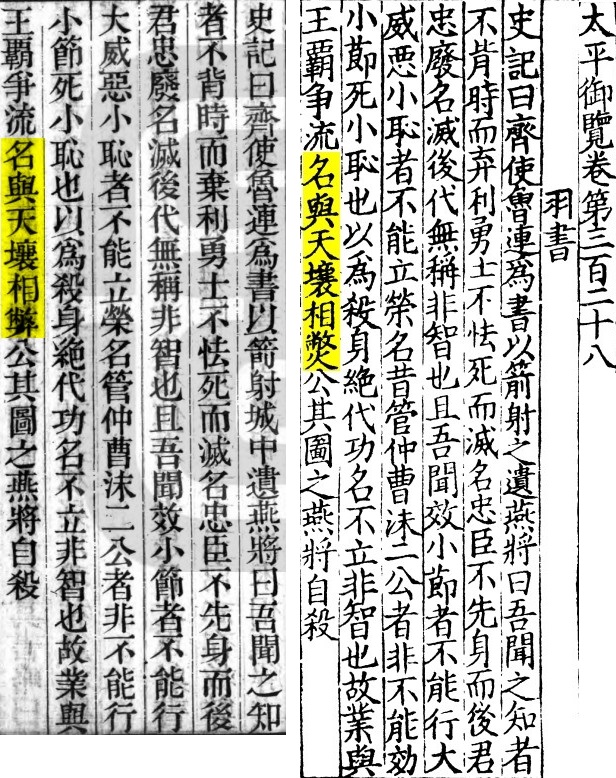 太平御覽卷第三百二十八
羽書
史記曰齊使魯連為書以箭射之遺燕將曰吾聞之知者
不背時而弃利勇士不怯死而滅名忠臣不先身而後君
忠廢名滅後代無稱非智也且吾聞效小節者不能行大
威惡小恥者不能立榮名昔管仲曹沫二公者非不能効
小節死小恥也以為殺身絕代功名不立非智也故業與
王霸争流名與天壤相獘公其圖之燕將自殺
史記曰齊使魯連為書以箭射城中遺燕將曰吾聞之知
者不背時而棄利勇士不怯死而滅名忠臣不先身而後
君忠廢名滅後代無稱非智也且吾聞效小節者不能行
大威惡小恥者不能立榮名管仲曹沫二公者非不能行
小節死小恥也以爲殺身絕代功名不立非智也故業與
王覇爭流名與天壤相弊公其圖之燕將自殺